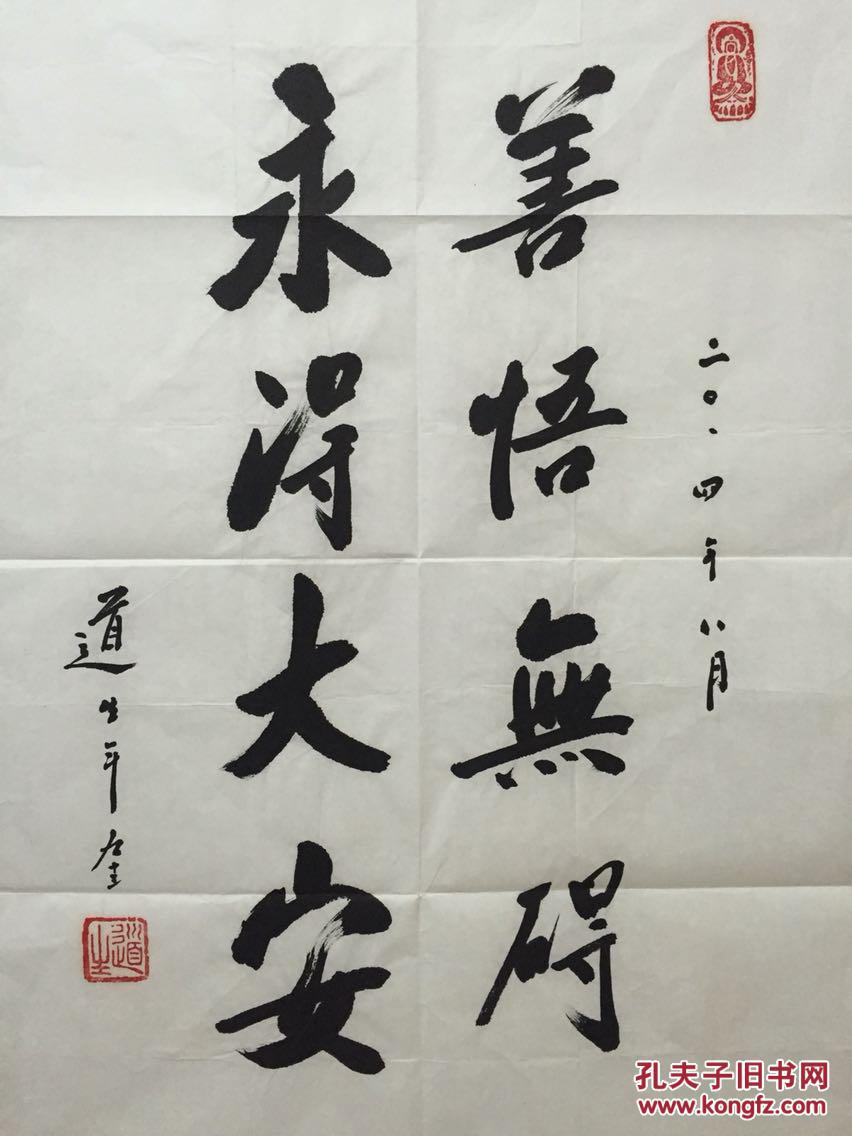 二〇一四年八月
善悟無碍
永得大安
道生年奎
道生
孔夫子旧书网
www.kongfz.com